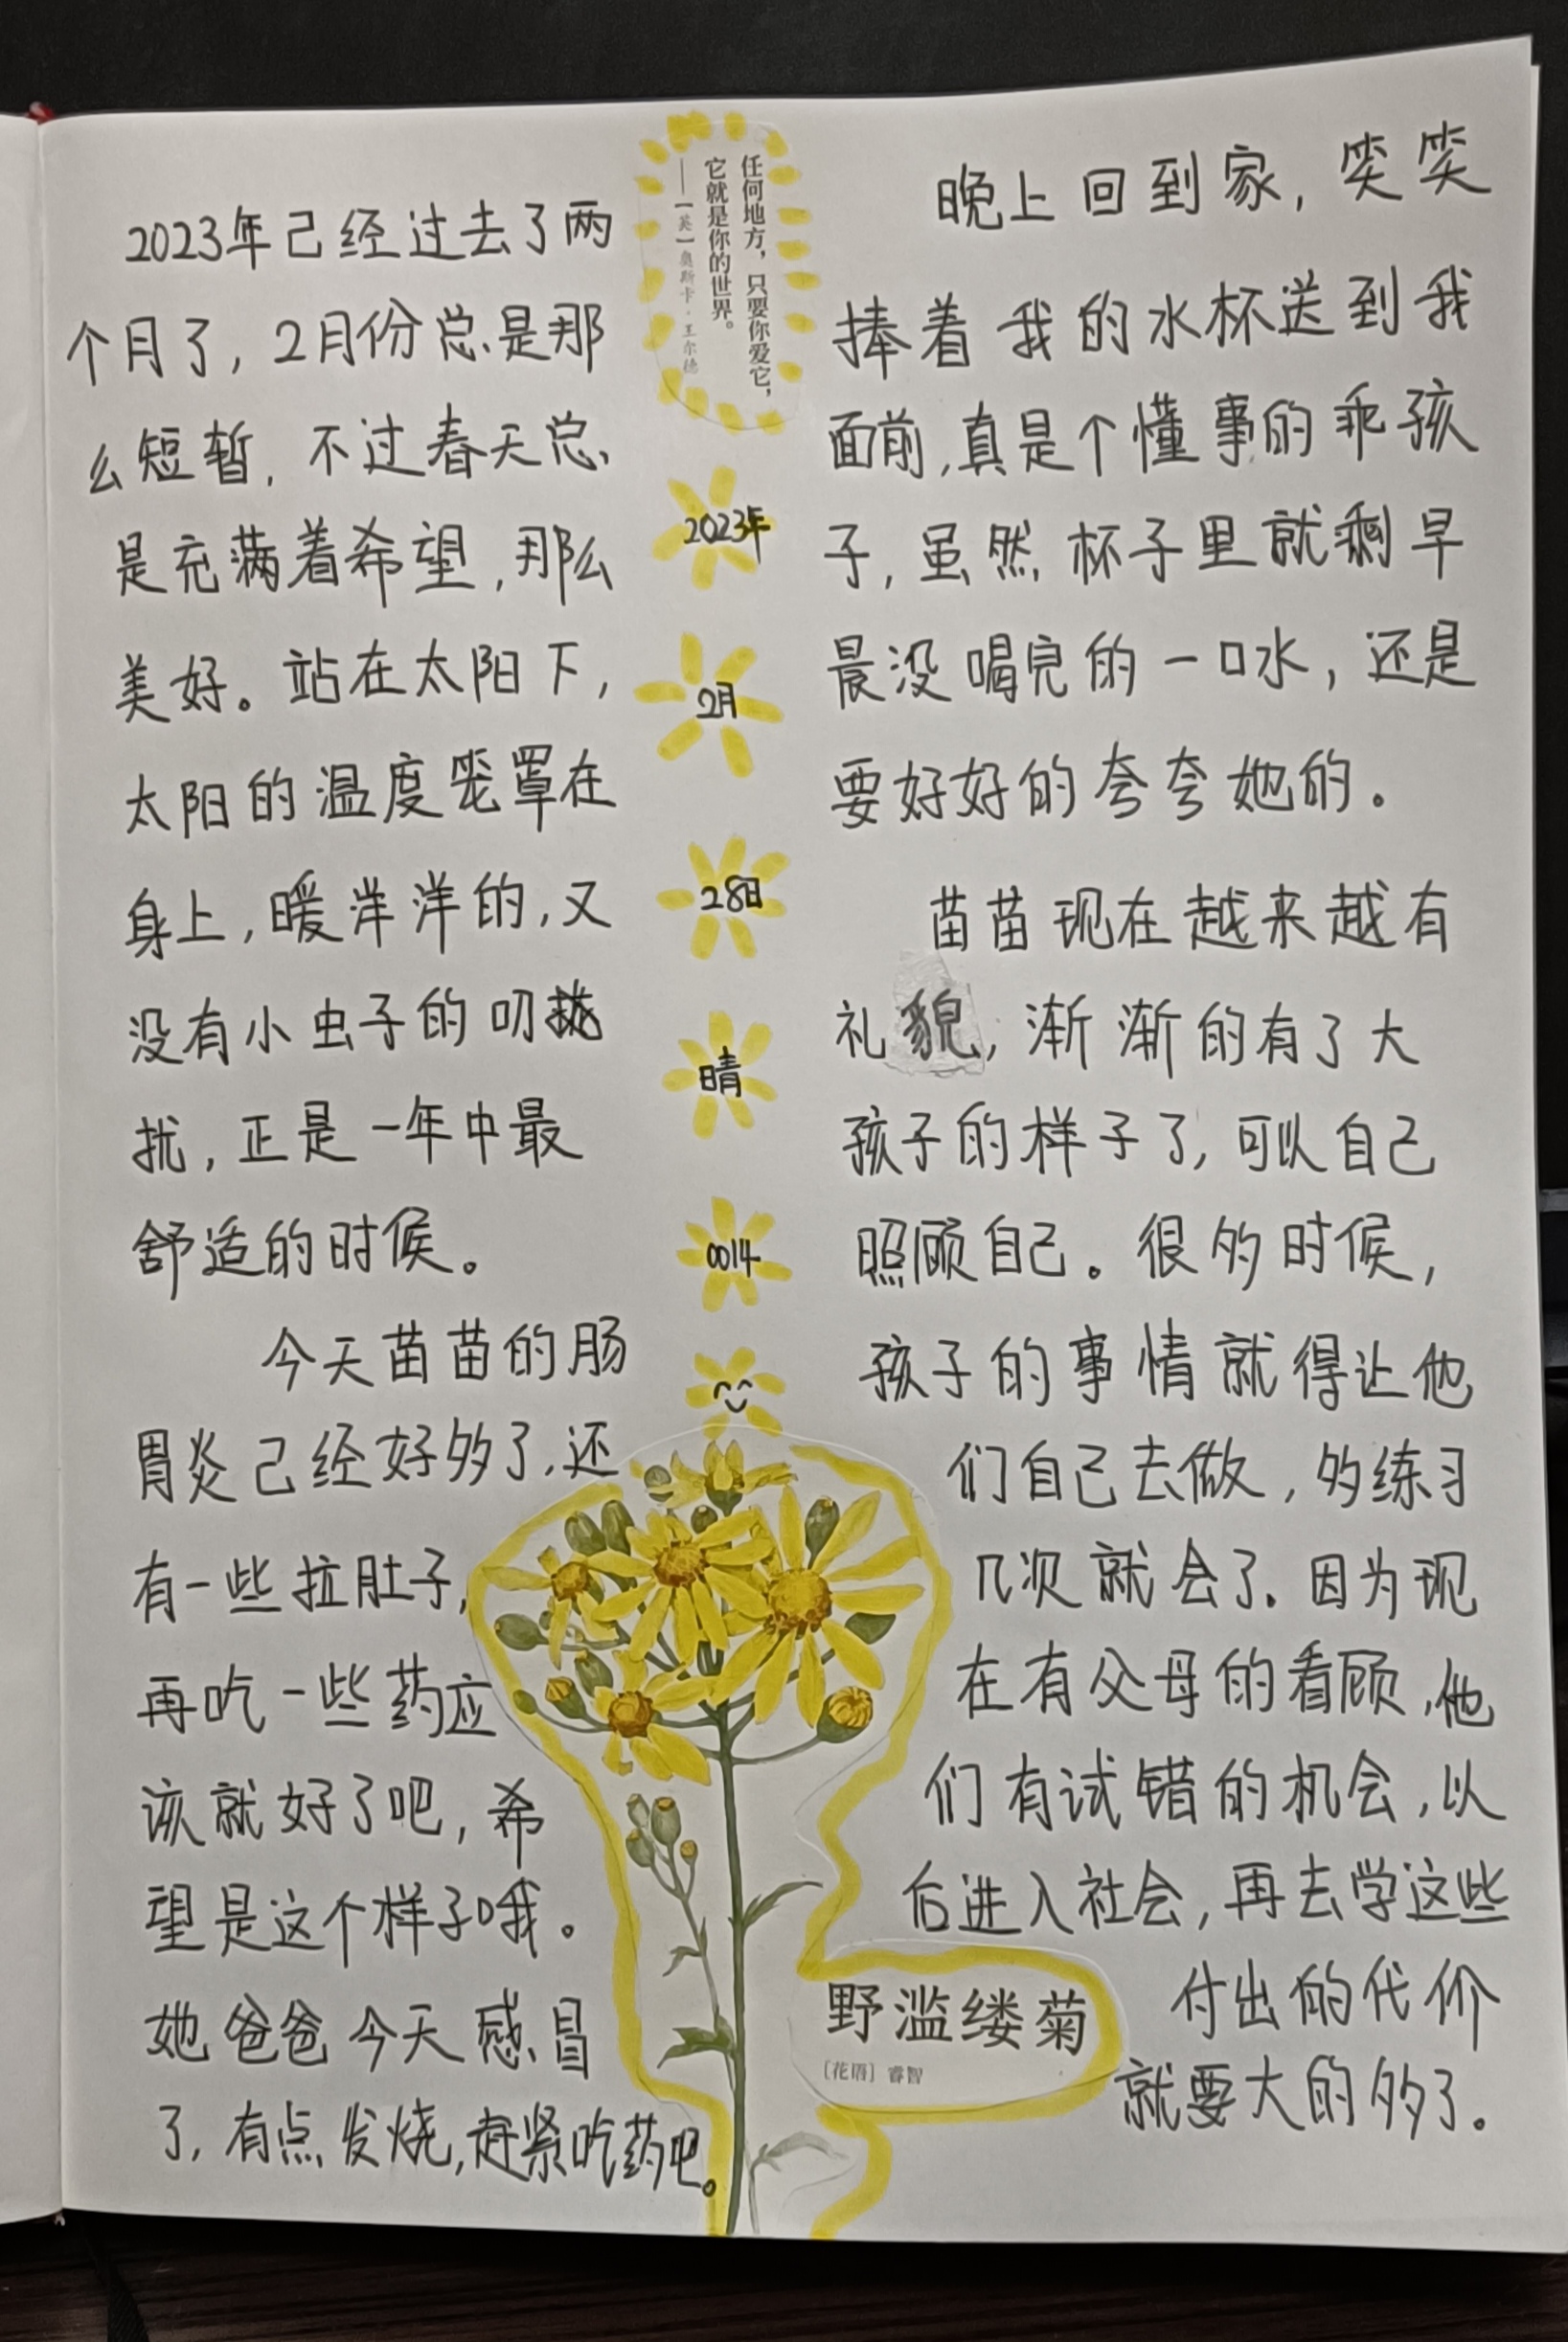 2023年己经过去了两
个月了，2月份总是那
么短暂，不过春天总
是充满着希望，那么
美好。站在太阳下，
太阳的温度笼罩在
身上，暖洋洋的，又
没有小虫子的叨
扰，正是一年中最
舒适的时候。
今天苗苗的肠
胃炎己经好多了，还
有一些拉肚子，
再吃一些药应
该就好了吧，希
望是这个样子哦。
她爸爸今天感冒
了，有点发烧，赶紧吃药吧。
任何地方，只要你爱它，
它就是你的世界。
——［英］奥斯卡·王尔德
2023年
2月
28日
晴
0014
野滥缕菊
［花语］睿智
晚上回到家，笑笑
捧着我的水杯送到我
面前，真是个懂事的乖孩
子，虽然杯子里就剩早
晨没喝完的一口水，还是
要好好的夸夸她的。
苗苗现在越来越有
礼貌，渐渐的有了大
孩子的样子了，可以自己
照顾自己。很多时候，
孩子的事情就得让他
们自己去做，多练习
几次就会了。因为现
在有父母的看顾，他
们有试错的机会，以
后进入社会，再去学这些
付出的代价
就要大的多了。